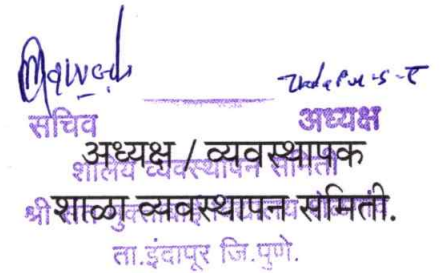 सचिव अध्यक्ष
अध्यक्ष / व्यवस्थापक
शालेय व्यवस्थापन समिती
शाळा व्यवस्थापन समिती.
श्री
ता.इंदापूर जि.पुणे.